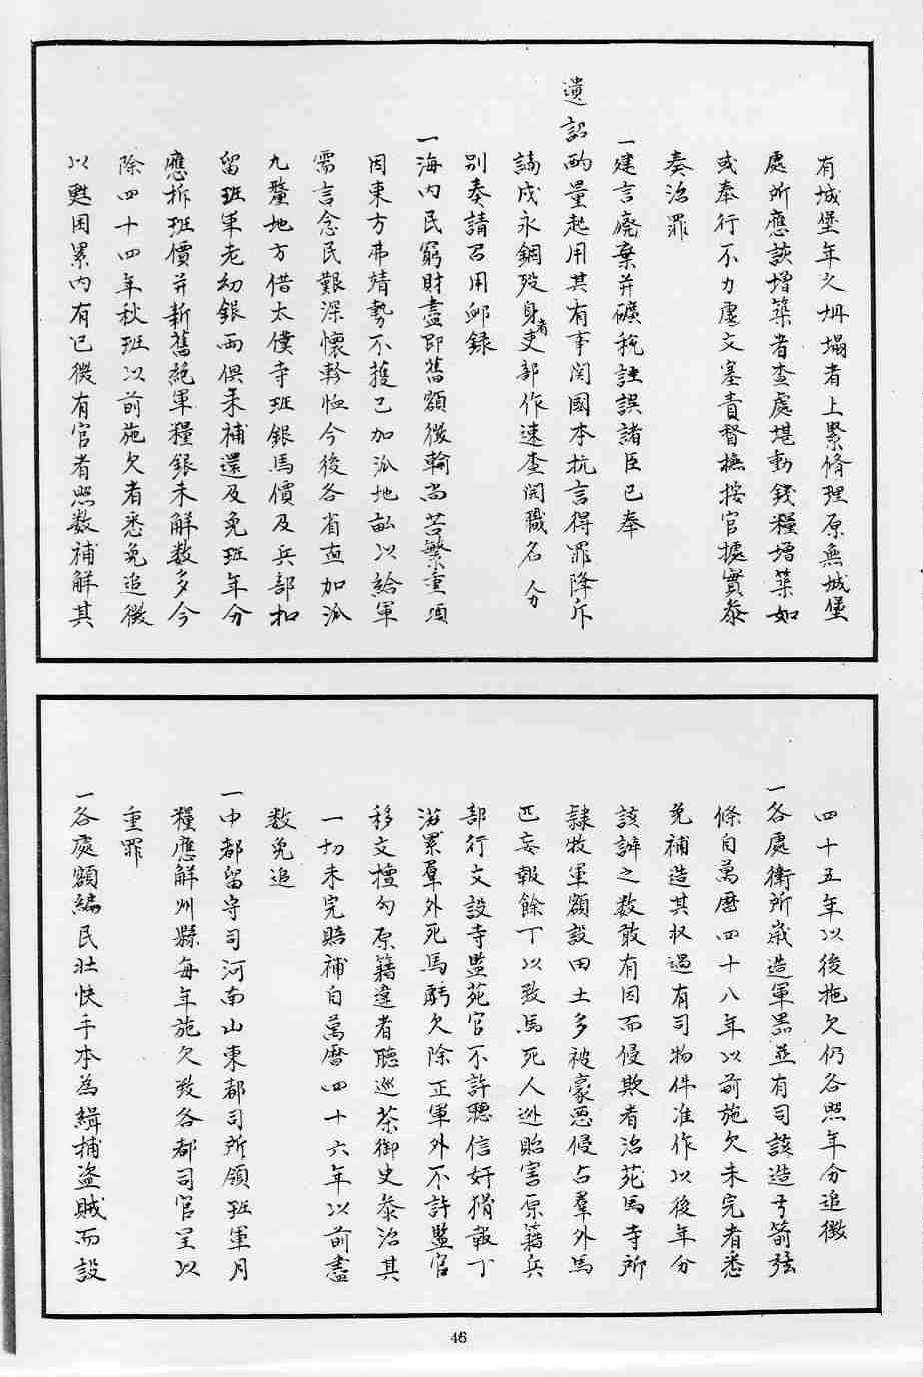 有城堡年久坍塌者上緊脩理原無城堡
處所應該增築者查處堪動錢糧增築如
或奉行不力虛文塞責督撫按官據實叅
奏治罪
一建言廢棄并礦稅詿誤諸臣已奉
遺詔酌量起用其有事関國本抗言得罪降斥
謫戍永錮殁身者吏部作速查開職名分
别奏請召用䘏録
一海内民窮財盡即舊額徵輸尚苦繁重項
因東方弗靖勢不獲已加派地畝以給軍
需言念民艱深懷軫恤今後各省直加派
九釐地方借太僕寺班銀馬價及兵部扣
留班軍老幼銀両俱未補還及免班年分
應折班價并新舊絶軍糧銀未解数多今
除四十四年秋班以前拖欠者悉免追徵
以甦困累内有已徵有官者照数補解其
四十五年以後拖欠仍各照年分追徵
一各處衛所歲造軍噐並有司該造弓箭弦
條自萬曆四十八年以前拖欠未完者悉
免補造其収過有司物件准作以後年分
該辦之数敢有因而侵欺者治苑馬寺所
隷牧軍額設田土多被豪惡侵占羣外馬
匹妄報餘丁以致馬死人逃貽害原籍兵
部行文該寺監苑官不許聽信奸猾報丁
滋累羣外死馬虧欠除正軍外不許監官
移文擅勾原籍違者聽巡茶御史叅治其
一切未完賠補自萬曆四十六年以前盡
数免追
一中都留守司河南山東都司所領班軍月
糧應解州縣每年拖欠致各都司官呈以
重罪
一各處額編民壯快手本為緝捕盗賊而設
46